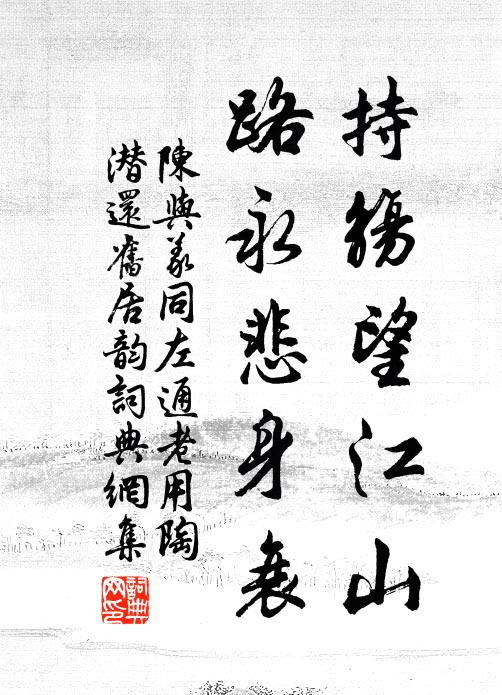 持觴望江山
路永悲身衰
陳與義同左通老用陶
潛還舊居韵詞典網集
詞典網印